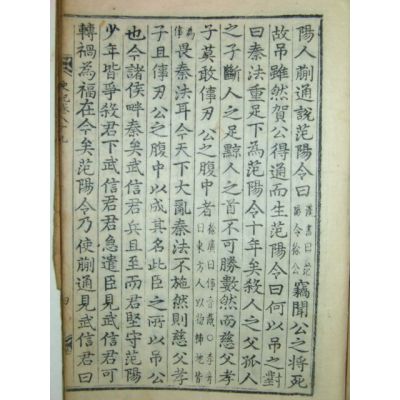 陽人蒯通說范陽令曰漢書曰范陽令徐公竊聞公之將死
故吊雖然賀公得通而生范陽令曰何以吊之對
曰秦法重足下為范陽令十年矣殺人之父孤人
之子斷人之足黥人之首不可勝數然而慈父孝
子莫敢倳刃公之腹中者徐廣曰倳音胾○李奇曰東方人以物臿地皆
為倳畏秦法耳今天下大亂秦法不施然則慈父孝
子且倳刃公之腹中以成其名此臣之所以吊公
也今諸侯畔秦矣武信君兵且至而君堅守范陽
少年皆爭殺君下武信君君急遣臣見武信君可
轉禍為福在今矣范陽令乃使蒯通見武信君曰